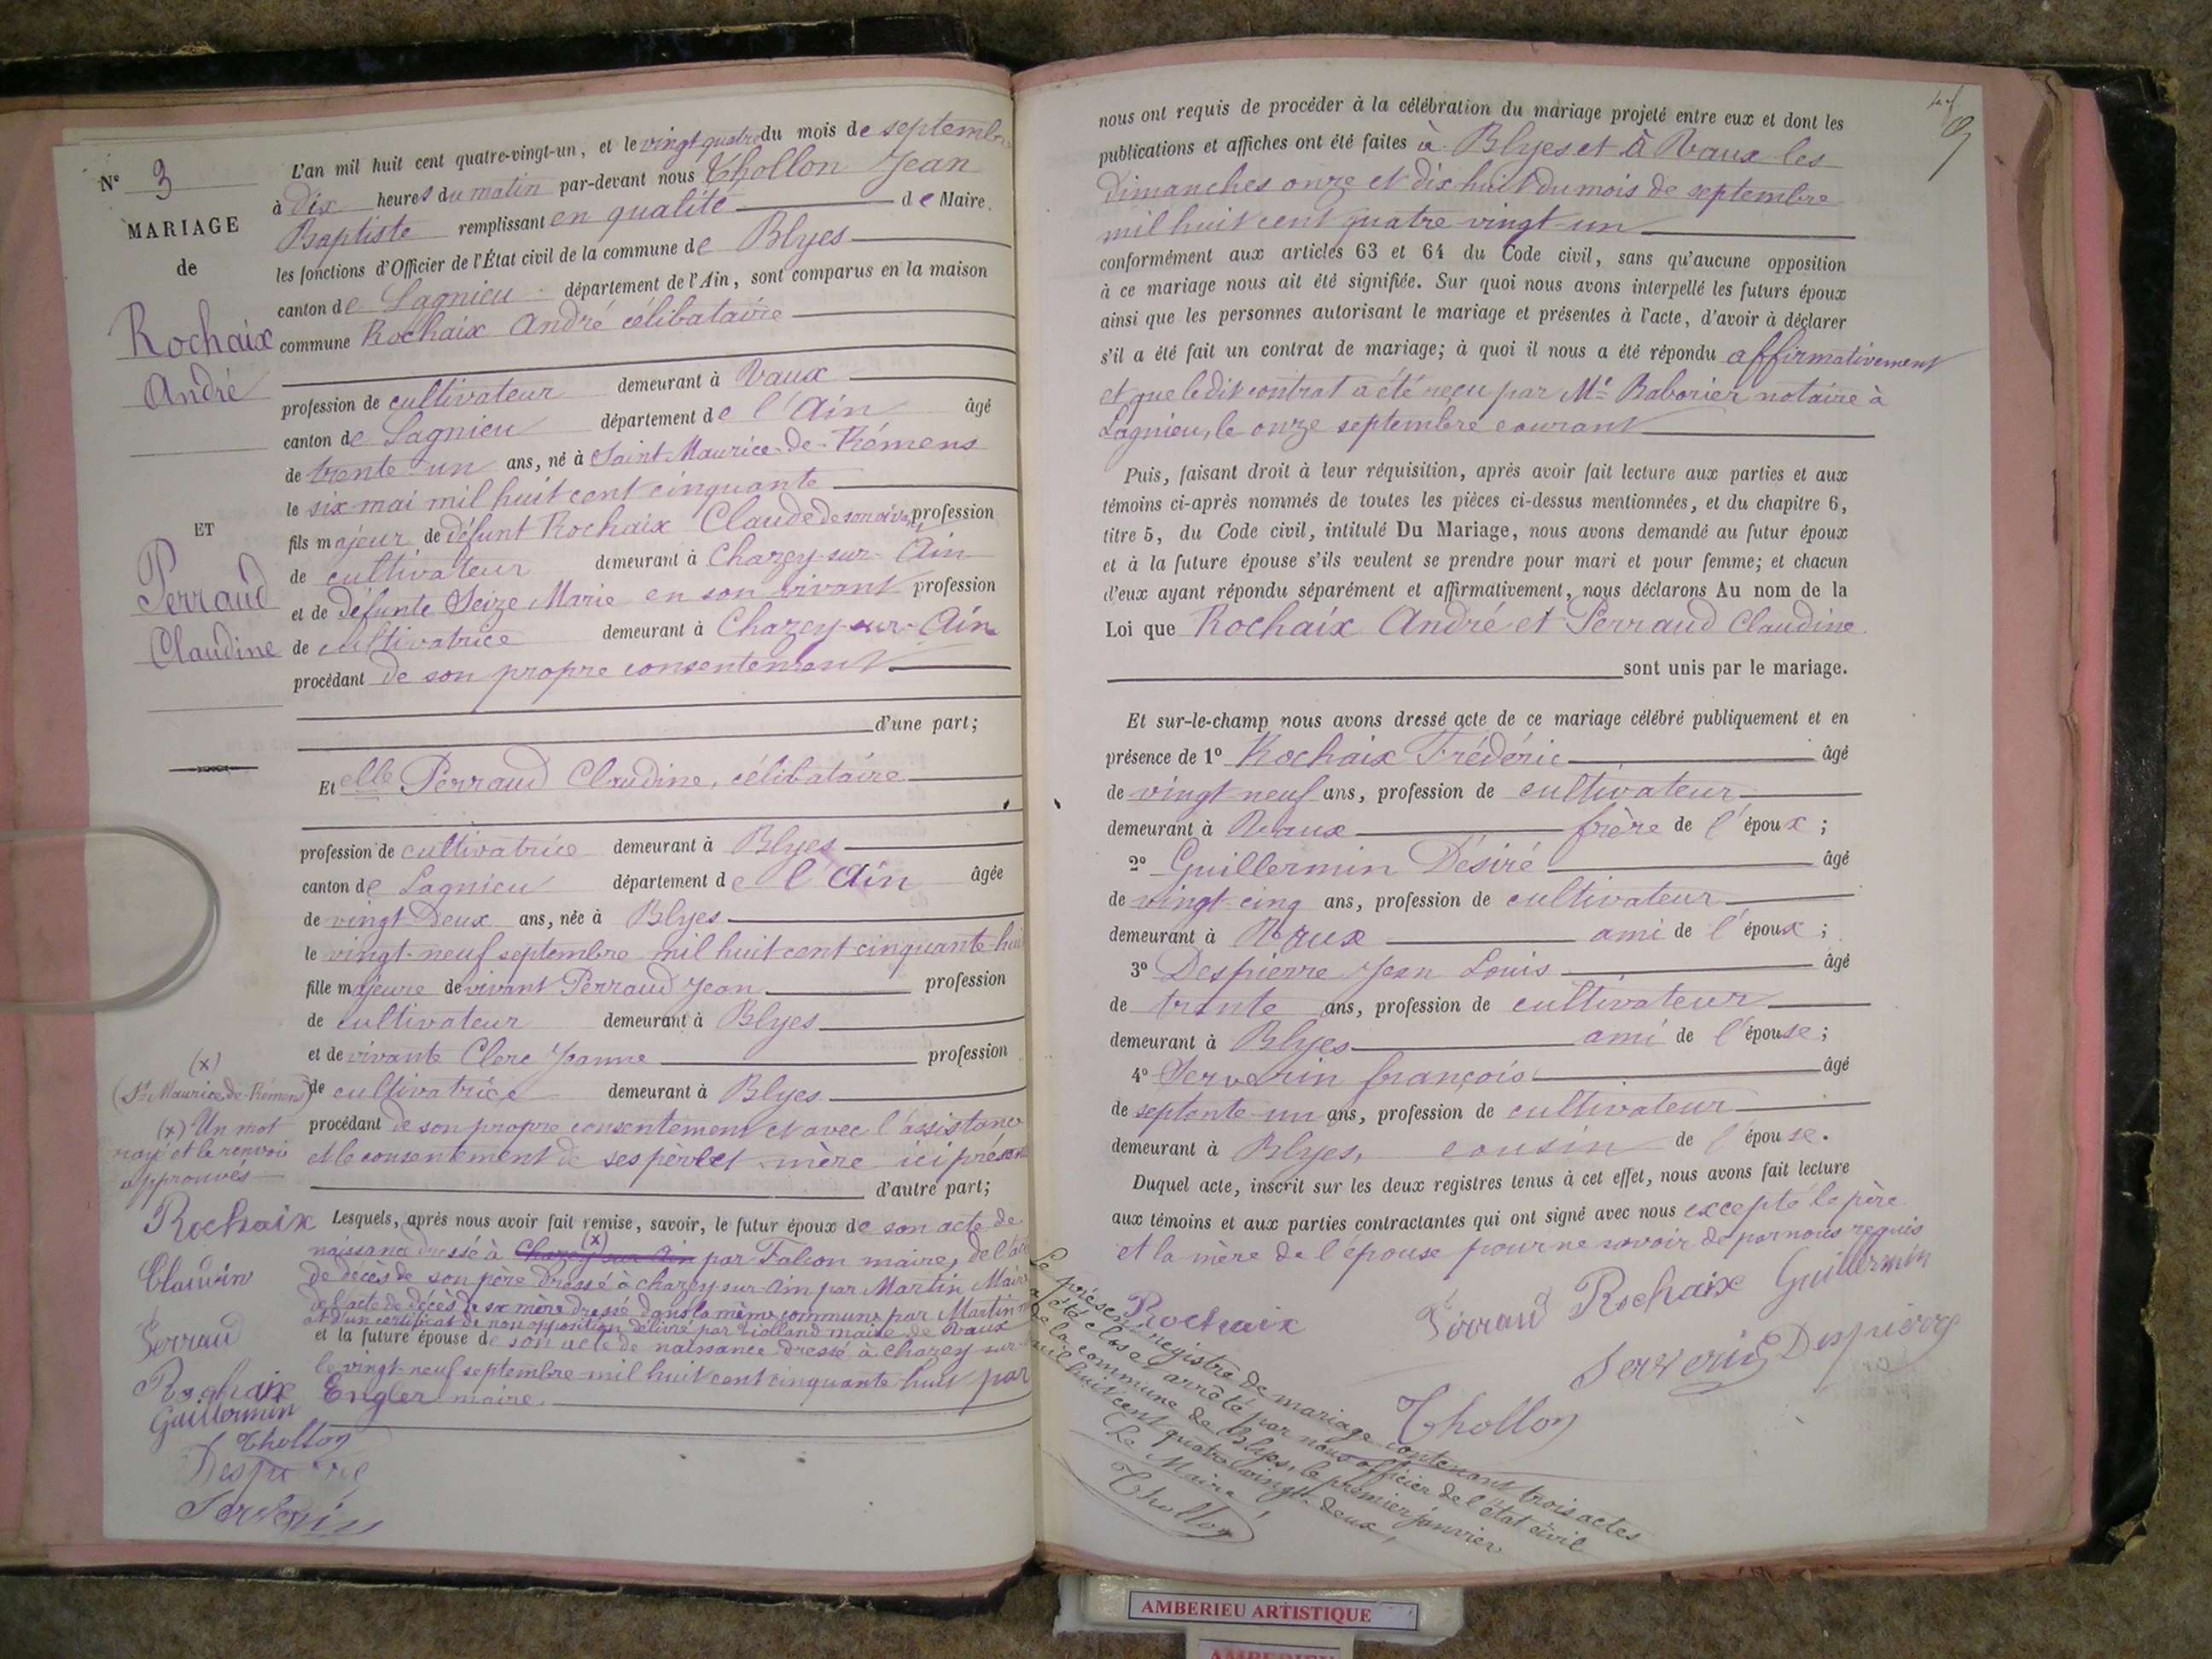 N° 3
MARIAGE
de
Rochaix
André
ET
Perraud
Claudine
L'an mil huit cent quatre-vingt-un, et le vingt quatre du mois de septembre
à dix heures du matin par-devant nous Thollon Jean
Baptiste remplissant en qualité de Maire.
les fonctions d'Officier de l'État civil de la commune de Blyes
canton de Lagnieu département de l'Ain, sont comparus en la maison
commune Rochaix André célibataire
profession de cultivateur demeurant à Vaux
canton de Lagnieu département de l'Ain âgé
de trente-un ans, né à Saint-Maurice-de-Rémens
le six mai mil huit cent cinquante
fils majeur de défunt Rochaix Claude de son vivant profession
de cultivateur demeurant à Chazey-sur-Ain
et de défunte Seize Marie en son vivant profession
de cultivatrice demeurant à Chazey-sur-Ain
procédant de son propre consentement
d'une part;
Et elle Perraud Claudine, célibataire
profession de cultivatrice demeurant à Blyes
canton de Lagnieu département de l'Ain âgée
de vingt Deux ans, née à Blyes
le vingt-neuf septembre mil huit cent cinquante-huit
fille majeure de vivant Perraud Jean profession
de cultivateur demeurant à Blyes
et de vivante Clerc Jeanne profession
de cultivatrice demeurant à Blyes
procédant de son propre consentement et avec l'assistance
et le consentement de ses père et mère ici présents
d'autre part;
Lesquels, après nous avoir fait remise, savoir, le futur époux de son acte de
naissance dressé à Chazey sur Ain (x) par Falcon maire, de l'acte
de décès de son père dressé à Chazey-sur-Ain par Martin Maire
de l'acte de décès de sa mère dressé dans la même commune par Martin
et d'un certificat de non opposition délivré par Violland maire de Vaux
et la future épouse de son acte de naissance dressé à Chazey sur
le vingt-neuf septembre mil huit cent cinquante huit par
Engler maire.
(x)
(St Maurice-de-Rémens)
(x) Un mot
rayé et le renvoi
approuvés
Rochaix
Claudine
Perraud
Rochaix
Guillermin
Thollon
Despierre
Serverin
nous ont requis de procéder à la célébration du mariage projeté entre eux et dont les
publications et affiches ont été faites à Blyes et à Vaux les
dimanches onze et dix huit du mois de septembre
mil huit cent quatre vingt-un
conformément aux articles 63 et 64 du Code civil, sans qu'aucune opposition
à ce mariage nous ait été signifiée. Sur quoi nous avons interpellé les futurs époux
ainsi que les personnes autorisant le mariage et présentes à l'acte, d'avoir à déclarer
s'il a été fait un contrat de mariage; à quoi il nous a été répondu affirmativement
et que ledit contrat a été reçu par Me Baborier notaire à
Lagnieu, le onze septembre courant
Puis, faisant droit à leur réquisition, après avoir fait lecture aux parties et aux
témoins ci-après nommés de toutes les pièces ci-dessus mentionnées, et du chapitre 6,
titre 5, du Code civil, intitulé Du Mariage, nous avons demandé au futur époux
et à la future épouse s'ils veulent se prendre pour mari et pour femme; et chacun
d'eux ayant répondu séparément et affirmativement, nous déclarons Au nom de la
Loi que Rochaix André et Perraud Claudine
sont unis par le mariage.
Et sur-le-champ nous avons dressé acte de ce mariage célébré publiquement et en
présence de 1° Rochaix Frédéric âgé
de vingt-neuf ans, profession de cultivateur
demeurant à Vaux frère de l'époux;
2° Guillermin Désiré âgé
de vingt-cinq ans, profession de cultivateur
demeurant à Vaux ami de l'époux;
3° Despierre Jean Louis âgé
de trente ans, profession de cultivateur
demeurant à Blyes ami de l'épouse;
4° Serverin françois âgé
de septante-un ans, profession de cultivateur
demeurant à Blyes, cousin de l'épouse.
Duquel acte, inscrit sur les deux registres tenus à cet effet, nous avons fait lecture
aux témoins et aux parties contractantes qui ont signé avec nous excepté le père
et la mère de l'épouse pour ne savoir de par nous requis
Rochaix Perraud Rochaix Guillermin
Serverin Despierre
Thollon
Le présent registre de mariage contenant trois actes
a été clos et arrêté par nous officier de l'état civil
de la commune de Blyes, le premier janvier
mil huit cent quatre vingt-deux,
Le Maire,
Thollon
AMBERIEU ARTISTIQUE
AMBERIEU